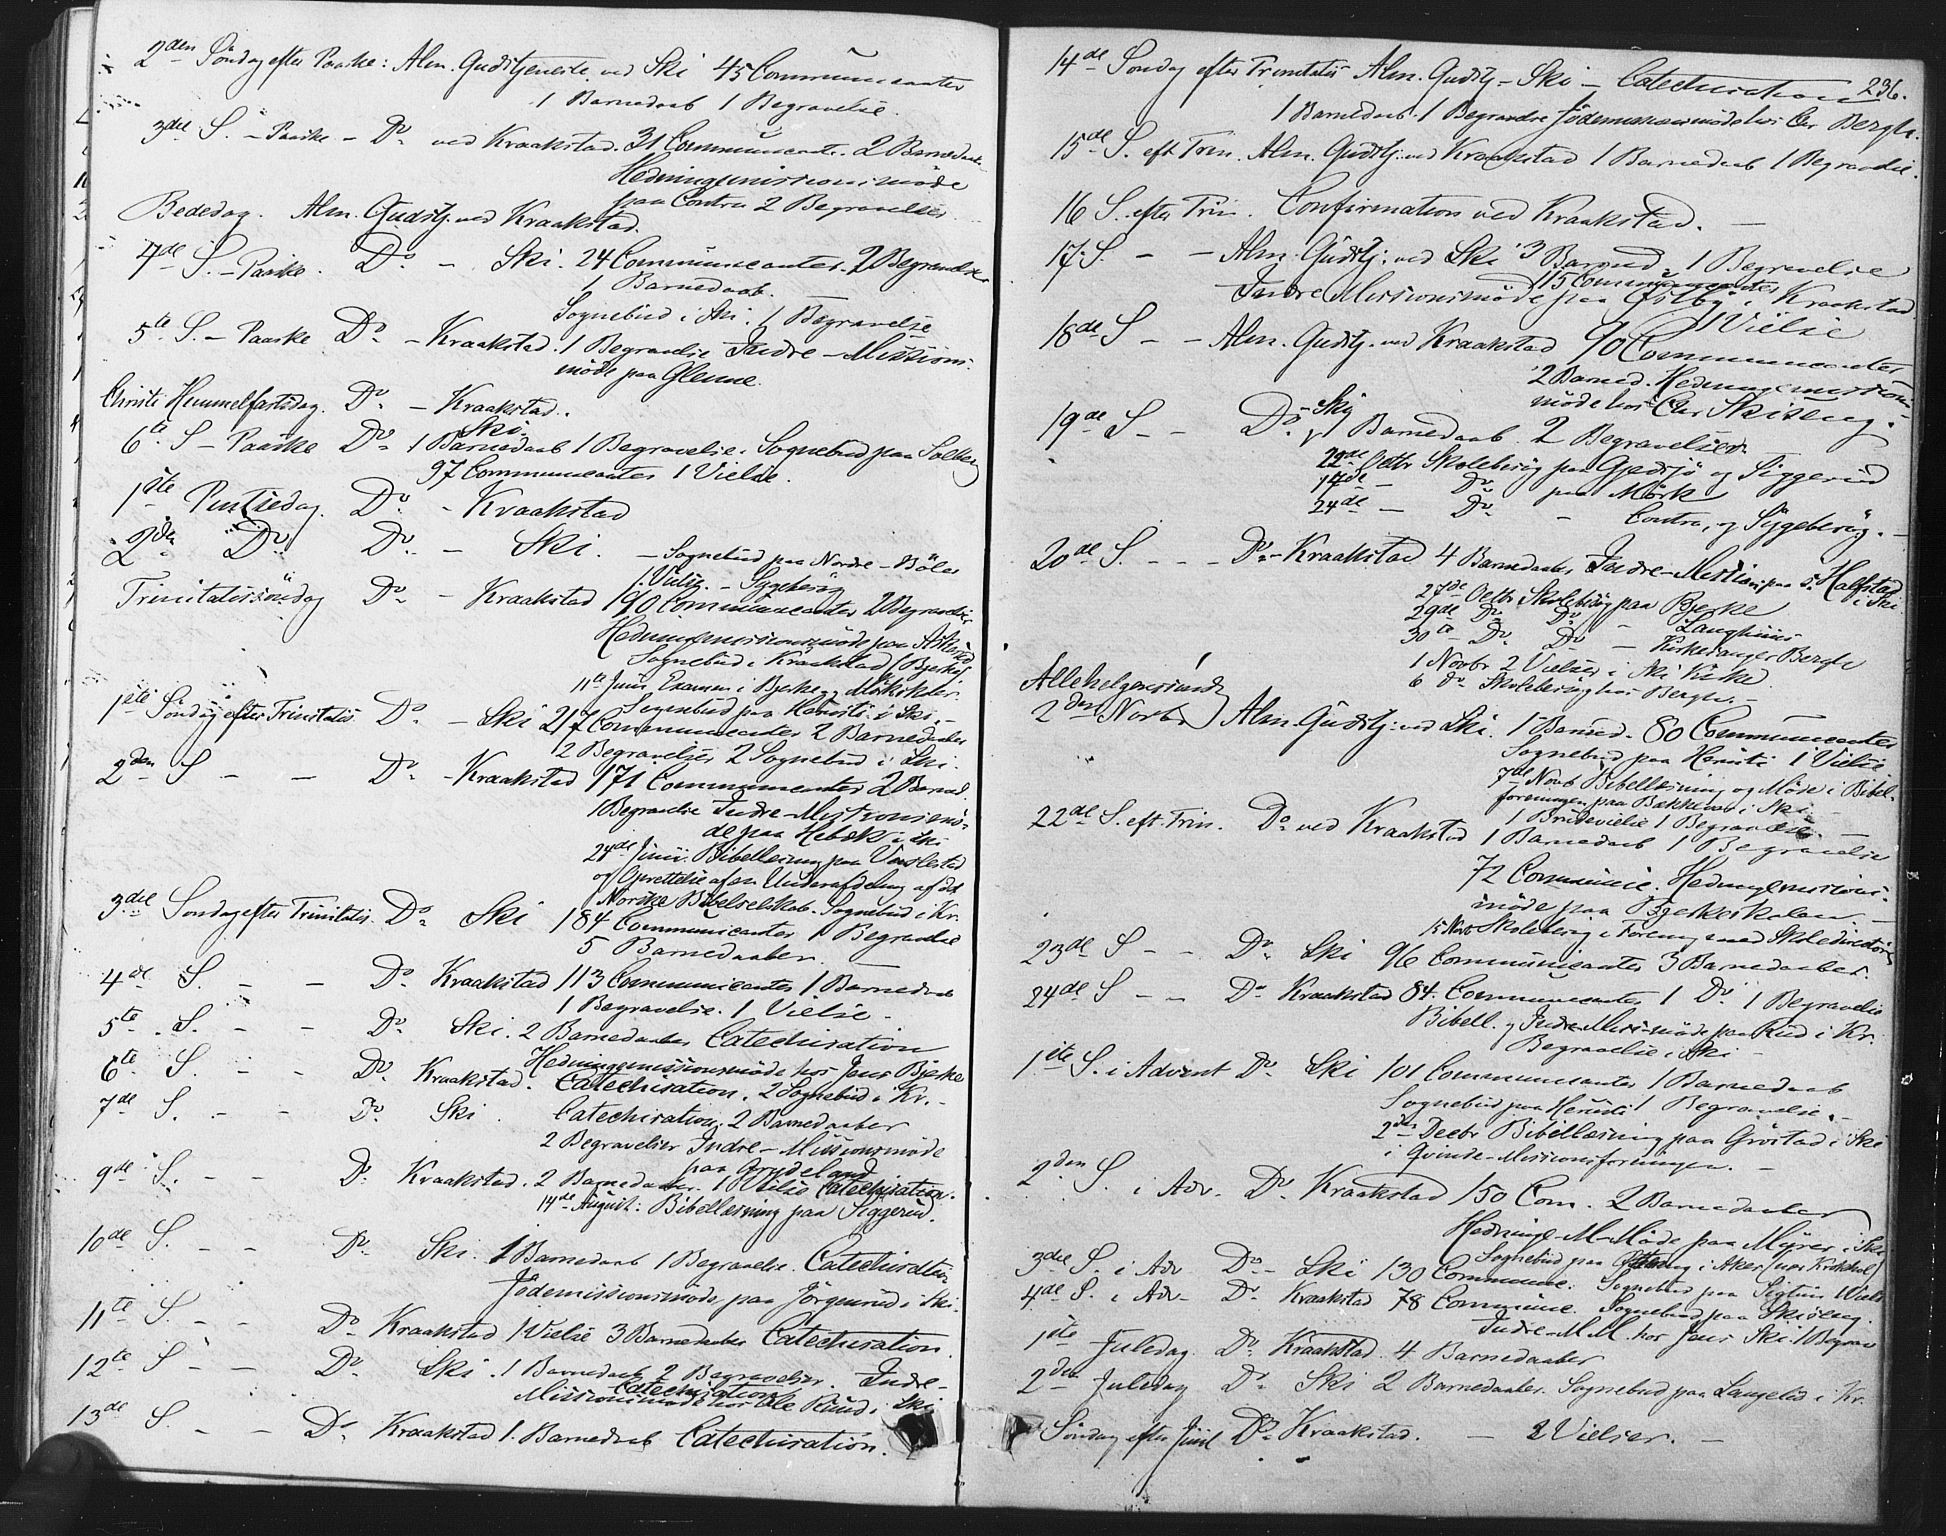 2den Søndag efter Paaske: Alm. Gudstjeneste ved Ski 45 Communicanter
1 Barnedaab 1 Begravelse.
3die S. - Paaske - Do ved Kraakstad. 31 Communicanter. 2 Barnedaab
Hedningemissionsmöde
paa Contra 2 Begravelser
Bededag. Alm. Gudstj. ved Kraakstad.
4de S. - Paaske. Do - Ski. 24 Communicanter. 2 Begravelser
1 Barnedaab.
Sognebud i Ski. 1 Begravelse
5te S. - Paaske Do - Kraakstad. 1 Begravelse Indre-Missions-
möde paa Glenne.
Christi Himmelfartsdag. Do - Kraakstad.
Ski.
6te S - Paaske Do 1 Barnedaab 1 Begravelse. Sognebud paa Solberg
97 Communicanter 1 Vielse.
1ste Pintsedag. Do - Kraakstad
2den Do Do - Ski.
- Sognebud paa Nordre-Bøler
1 Vielse. - Sygebesøg
Trinitatissöndag Do - Kraakstad 190 Communicanter 2 Begravelser
Hedningemissionsmøde paa
Sognebud i Kraakstad (Bjerke)
11te Juni Examen i Bjerke og Mörk skoler.
Sognebud paa i Ski. -
1ste Søndag efter Trinitatis Do - Ski 217 Communicanter 2 Barnedaaber
2 Begravelser 2 Sognebud i Ski.
2den S - - Do - Kraakstad 171 Communicanter 2 Barned.
1 Begravelse Indre-Missionsmö-
de paa Hebæk i Ski
24de Juni. Bibellæsning paa
og Oprettelse af en Underafdeling af det
Norske Bibelselskab. Sognebud i Kr.
3die Søndag efter Trinitatis. Do Ski 184 Communicanter 1 Begravelse
5 Barnedaaber.
4de S. - - Do Kraakstad 113 Communicanter 1 Barnedaab
1 Begravelse. 1 Vielse -
5te S. - - Do Ski. 2 Barnedaaber Catechisation
Hedningemissionsmøde hos Jens Bjerke
6te S. - - Do Kraakstad. Catechisation. 2 Sognebud i Kr. -
7de S. - - Do Ski. Catechisation. 2 Barnedaaber
2 Begravelser Indre-Missionsmøde
paa Grydeland
9de S. - - Do Kraakstad. 2 Barnedaaber. 1 Vielse Catechisation.
14de August: Bibellæsning paa Siggerud.
10de S. - - Do Ski. 1 Barnedaab 1 Begravelse. Catechisation
Jødemissionsmøde paa Jörgenrud i Ski.
11te S. - - Do Kraakstad 1 Vielse 3 Barnedaaber Catechisation.
12te S - - Do Ski. 1 Barnedaab 2 Begravelser. Indre-
Catechisation
Missionsmöde hos Ole Ruud i Ski
13de S. - - Do Kraakstad 1. Barnedaab Catechisation.
236.
14de Søndag efter Trinitatis Alm. Gudstj. - Ski - Catechisation
1 Barnedaab. 1 Begravelse Jødemissionsmöde hos Chr Bergh.
15de S. eft Trin. Alm. Gudstj. ved Kraakstad 1 Barnedaab 1 Begravelse.
16 S. efter Trin. Confirmation ved Kraakstad. -
17. S. - - Alm. Gudstj. ved Ski 3 Barned 1 Begravelse
115 Communicanter
Indre Missionsmöde paa Østby i Kraakstad
1 Vielse
18de S - - Alm. Gudstj. ved Kraakstad 90 Communicanter
2 Barned. Hedningemissions-
möde hos Chr Skiseng.
19de S - - Do - Ski 1 Barnedaab. 2 Begravelser.
22de Octbr Skolebesög paa Gjedsjø og Siggerud
17de - Do paa Mörk
24de - Do - Contra, og Sygebesög. -
20de S. - - Do - Kraakstad 4 Barnedaaber Indre-Mission paa S. Halfstad
i Ski
27de Octbr Skolebesög paa Bjerke
29de Do Do - Langhuus
30te Do Do -
1 Novbr 2 Vielser i Ski Kirke
6 do Skolebesög hos Bergh. -
Allehelgenssönd
2den Novbr Alm. Gudstj. ved Ski. 1 Barned. 80 Communicanter
Sognebud paa 1 Vielse
7de Novb Bibellæsning og Møde i Bibel-
foreningen paa Bakkerud i Ski
1 Brudevielse 1 Begravelse. -
22de S. eft. Trin. Do ved Kraakstad 1 Barnedaab 1 Begravelse
72 Communic. Hedningemissions-
möde paa Bjerkeskolen -
15 Novb Skolebesög i Forening med Skoledirectören
23de S - - Do Ski 96 Communicanter 3 Barnedaaber.
24de S - - Do Kraakstad 84. Communicanter 1 Do 1 Begravelse
Bibell. og Indre-Miss-möde paa Rud i Kr.
Begravelse i Ski -
1ste S. i Advent Do Ski 101 Communicanter 1 Barnedaab
Sognebud paa 1 Begravelse. -
2den Decbr Bibellæsning paa Grøstad i Ski
i Qvinde-Missionsforeningen. -
2den S. i Adv. Do Kraakstad 150 Com. 2 Barnedaaber
Hedninge-M-Møde paa Myrer i Ski
Sognebud paa i Aker
3die S. i Adv Do - Ski 130 Commune. Sognebud paa
4de S. i Adv - Do Kraakstad 78 Commune. Sognebud paa Skiseng.
Indre-M.M. hos Jens Ski 1 Begrav
1ste Juledag. Do Kraakstad. 4 Barnedaaber
2den Juledag Do Ski 2 Barnedaaber. Sognebud paa Langelid i Kr.
Søndag efter Juul Do Kraakstad. - 2 Vielser. -